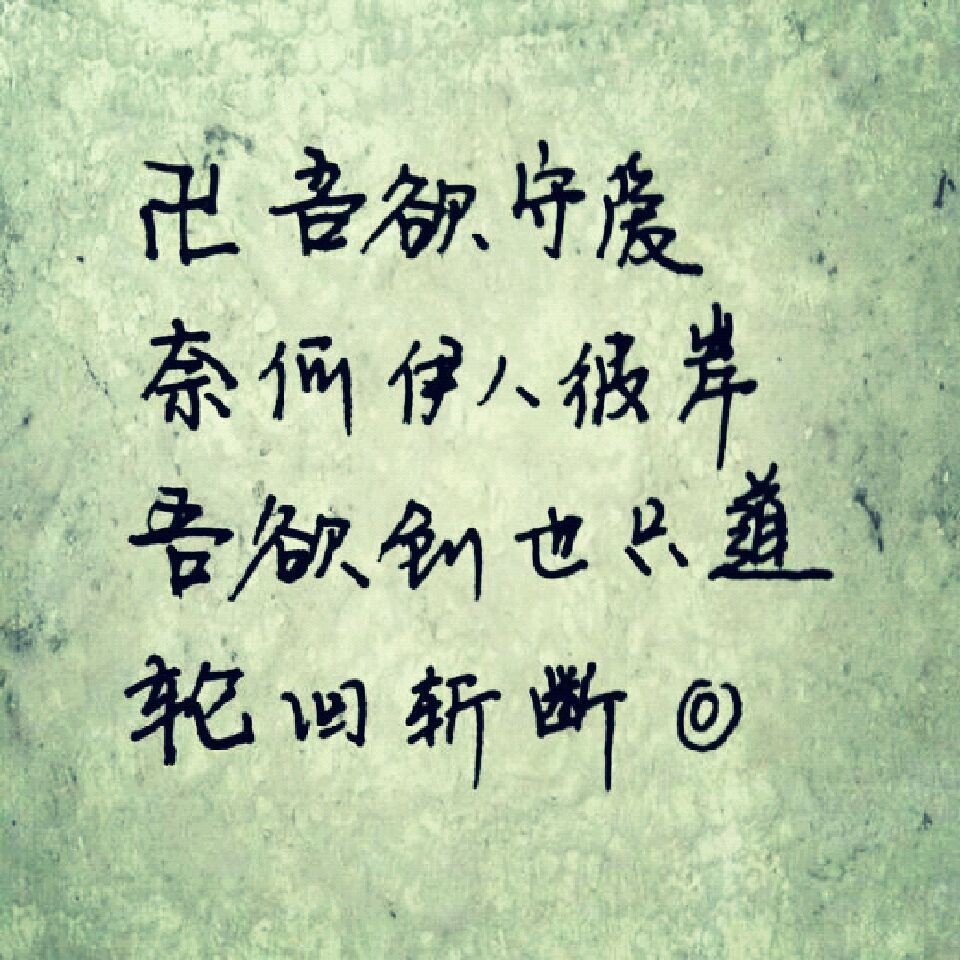 卍吾欲守护
奈何伊人彼岸
吾欲剑也只道
轮回斩断◎